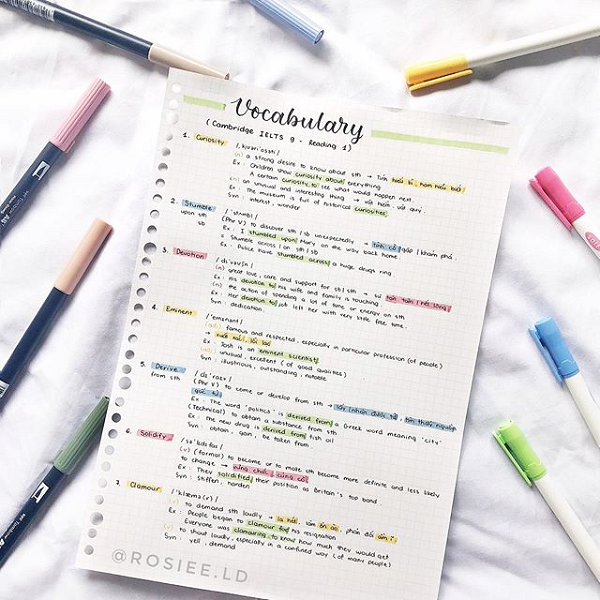 Vocabulary
(Cambridge IELTS 9. Reading 1)
1. Curiosity /ˌkjʊəriˈɒsəti/
(n) a strong desire to know about sth → Tính hiếu kì, ham hiểu biết
Ex: Children show curiosity about everything
A certain curiosity to see what would happen next.
(n) an unusual and interesting thing → vật hiếm, vật quý.
Ex: The museum is full of historical curiosities.
Syn: interest, wonder
2. Stumble /ˈstʌmbl/
upon sth (Phr V) To discover sth/sb unexpectedly → tình cờ gặp/khám phá.
sb E: I stumbled upon Mary on the way back home.
Stumble across/on sth/sb
Ex: Police have stumbled across a huge drugs ring
3. Devotion /dɪˈvəʊʃn/
(n) great love, care and support for sb/sth → sự tận tâm/hết lòng
Ex: His devotion to his wife and family is touching
(n) the action of spending a lot of time or energy on sth
Ex: Her devotion to job left her with very little free time.
Syn: dedication.
4. Eminent /ˈemɪnənt/
famous and respected, especially in particular profession (of people)
→ xuất sắc, lỗi lạc
Ex: Josh is an eminent scientist
unusual, excellent (of good qualities)
Syn: illustrious, outstanding, notable
5. Derive /dɪˈraɪv/
from sth (Phr V) to come or develop from sth → bắt nguồn từ
Ex: The word 'politics' is derived from a Greek word meaning 'city'
(Technical) to obtain a substance from sth
Ex: The new drug is derived from fish oil
Syn: obtain, gain, be taken from
6. Solidify /səˈlɪdɪfaɪ/
(v) (formal) to become or to make sth become more definite and less likely
to change → vững chắc, củng cố
Ex: They solidified their position as Britain's top band
Syn: Stiffen, harden
7. Clamour /ˈklæmə(r)/
to demand sth loudly → la hét, làm ồn ào, phản đối ầm ĩ
Ex: People began to clamour for his resignation
Everyone was clamouring to know how much they would get
(v) to shout loudly, especially in a confused way (of many people)
Syn: yell, demand
@ROSIEE.LD